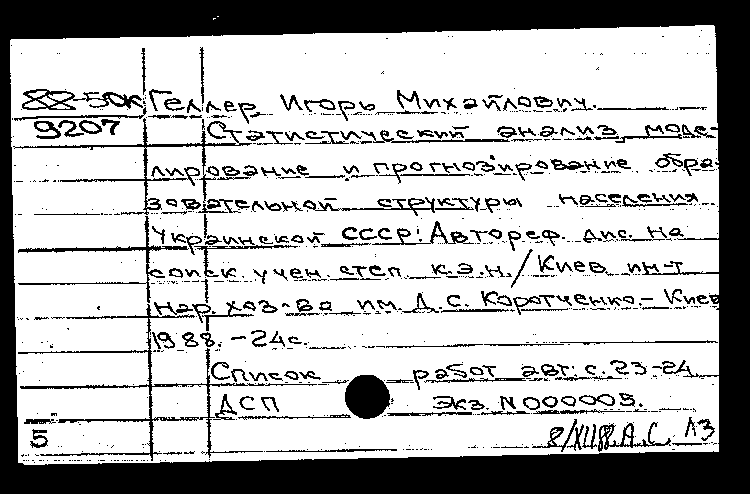 88-50к Геллер, Игорь Михайлович.
9207 Статистический анализ, моде-
лирование и прогнозирование обра-
зовательной структуры населения
Украинской ССР: Автореф. дис. на
соиск. учен. степ. к.э.н. / Киев. ин-т
нар. хоз-ва им. Д. С. Коротченко. - Киев
1988. - 24с.
Список работ авт.: с. 23-24
ДСП Экз. N000005.
5 8/XII88 А.С. ЛЗ